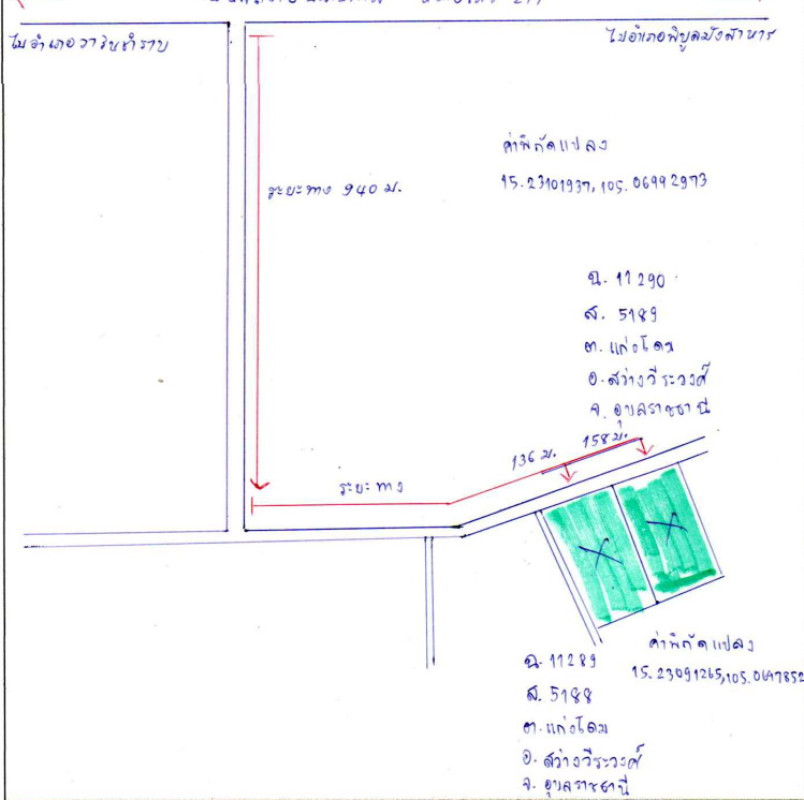 ไปอำเภอวารินชำราบ
ไปอำเภอพิบูลมังสาหาร
ค่าพิกัดแปลง
15.23101937, 105.06992973
ระยะทาง 940 ม.
ฉ. 11290
ส. 5189
ต. แก่งโดม
อ. สว่างวีระวงศ์
จ. อุบลราชธานี
158 ม.
136 ม.
ระยะทาง
ค่าพิกัดแปลง
15.23091265, 105.0697852
ฉ. 11289
ส. 5188
ต. แก่งโดม
อ. สว่างวีระวงศ์
จ. อุบลราชธานี